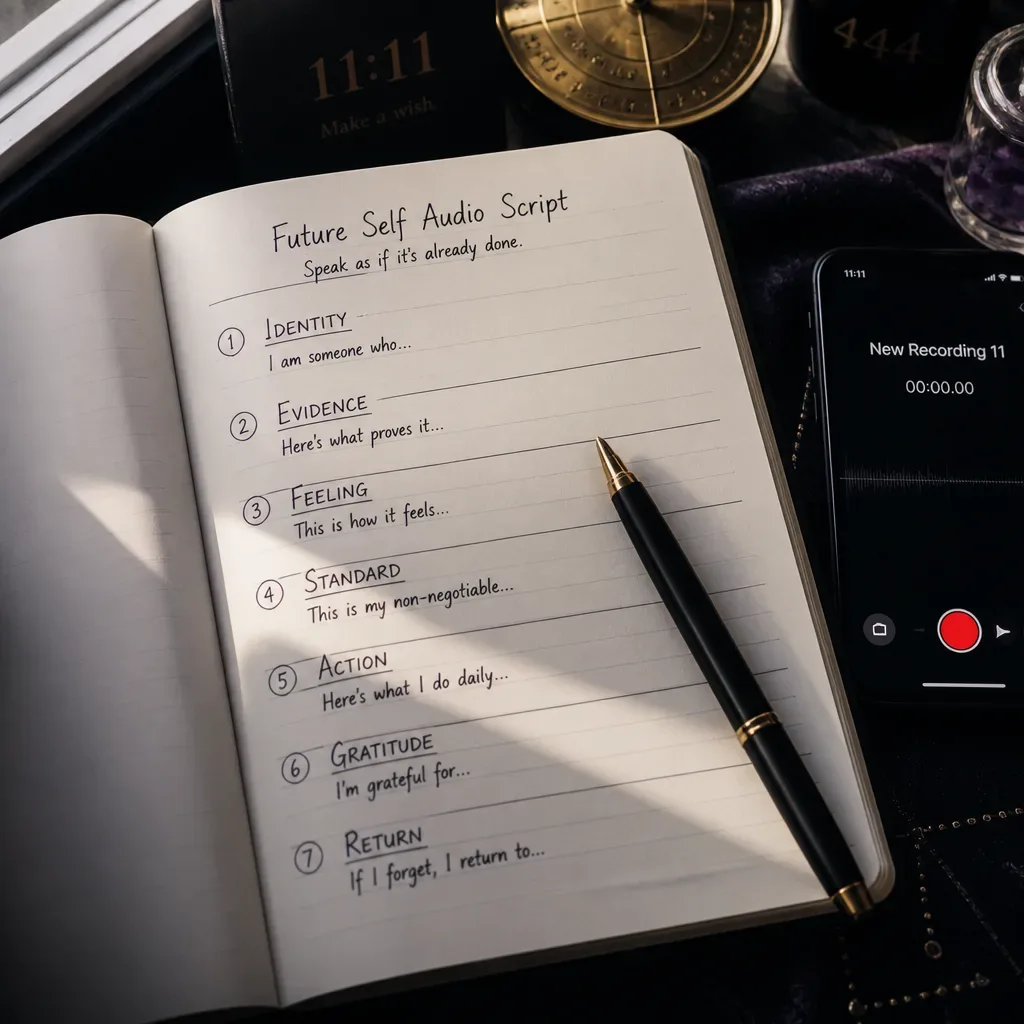 11:11
Make a wish.
444
Future Self Audio Script
Speak as if it's already done.
1 IDENTITY
I am someone who...
2 EVIDENCE
Here's what proves it...
3 FEELING
This is how it feels...
4 STANDARD
This is my non-negotiable...
5 ACTION
Here's what I do daily...
6 GRATITUDE
I'm grateful for...
7 RETURN
If I forget, I return to...
11:11
New Recording 11
00:00.00